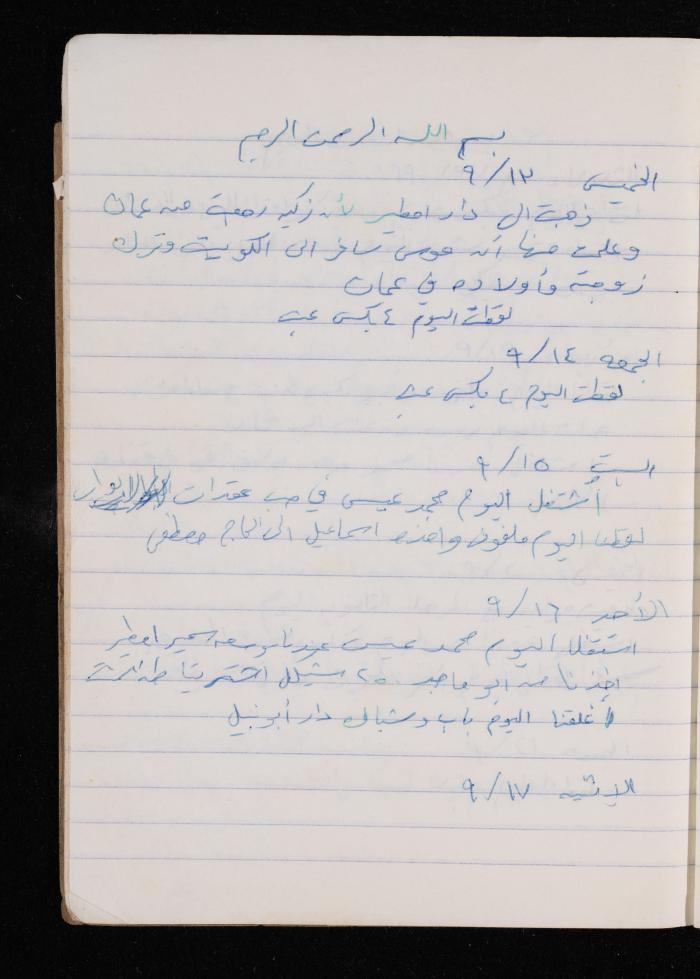 بسم الله الرحمن الرحيم
الخميس ٩/١٣
ذهبت الى دار امطير لأن زكيه رجعت من عمان
وعلمت منها أن موسى سافر الى الكويت وترك
زوجته وأولاده في عمان
لقطت اليوم ٤ بكس عنب
الجمعه ٩/١٤
لقطت اليوم ٤ بكس عنب
السبت ٩/١٥
أشتغل اليوم محمد عيسى في صب عقدات
لقطنا اليوم ملفوف واخذه اسماعيل الى الحاج مصطفى
الأحد ٩/١٦
اشتغل اليوم محمد عيسى عند سمير امطير
اخذنا من ابو ماجد ٢٥٠ شيكل اشترينا
أغلقنا اليوم باب وشباك دار أبو نبيل
الإثنين ٩/١٧